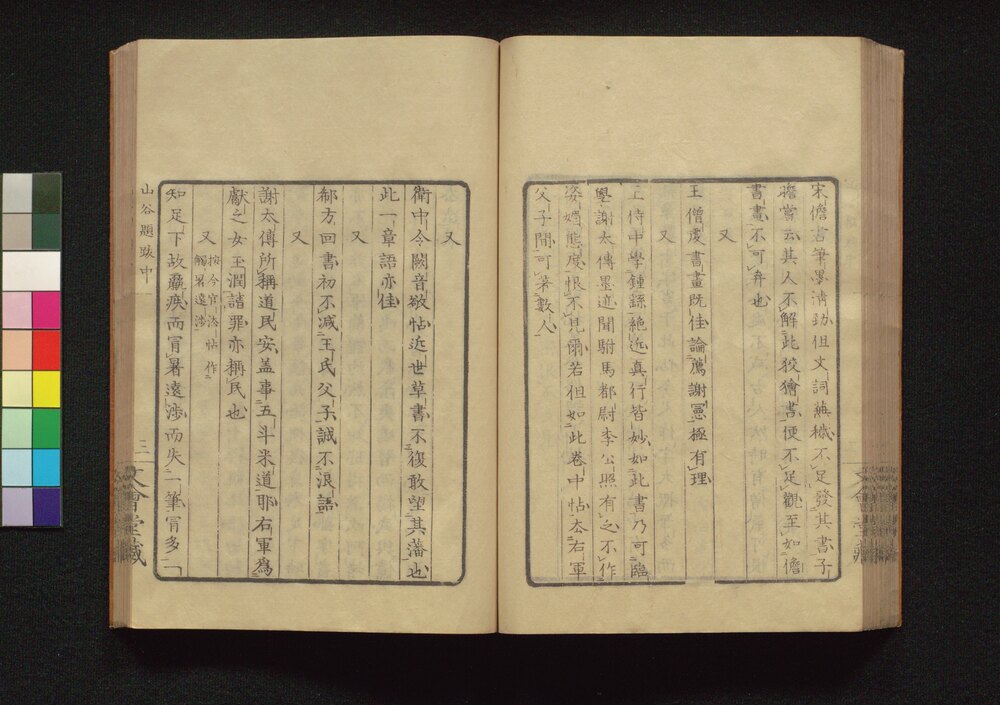 宋儋書筆墨清勁但文詞蕪穢不足發其書子
瞻嘗云其人不解此狡獪書便不足觀至如儋
書畫不可弃也
又
王僧虔書畫既佳論薦謝憲極有理
又
王侍中學鍾繇絶近真行皆妙如此書乃可臨
學謝太傅墨迹聞駙馬都尉李公照有之不作
姿媚態度恨不見爾若但如此卷中帖亦右軍
父子間可著數人
又
衛中令闕音敬帖近世草書不復敢望其藩也
此一章語亦佳
又
郗方回書初不減王氏父子誠不浪語
又
謝太傅所稱道民安盖事五斗米道耶右軍爲
獻之女玉潤請罪亦稱民也
又
按今官法帖作
觸暑遠涉
知足下故羸疾而冐暑遠涉而失一筆冐多一
山谷題跋中
三
文會堂藏